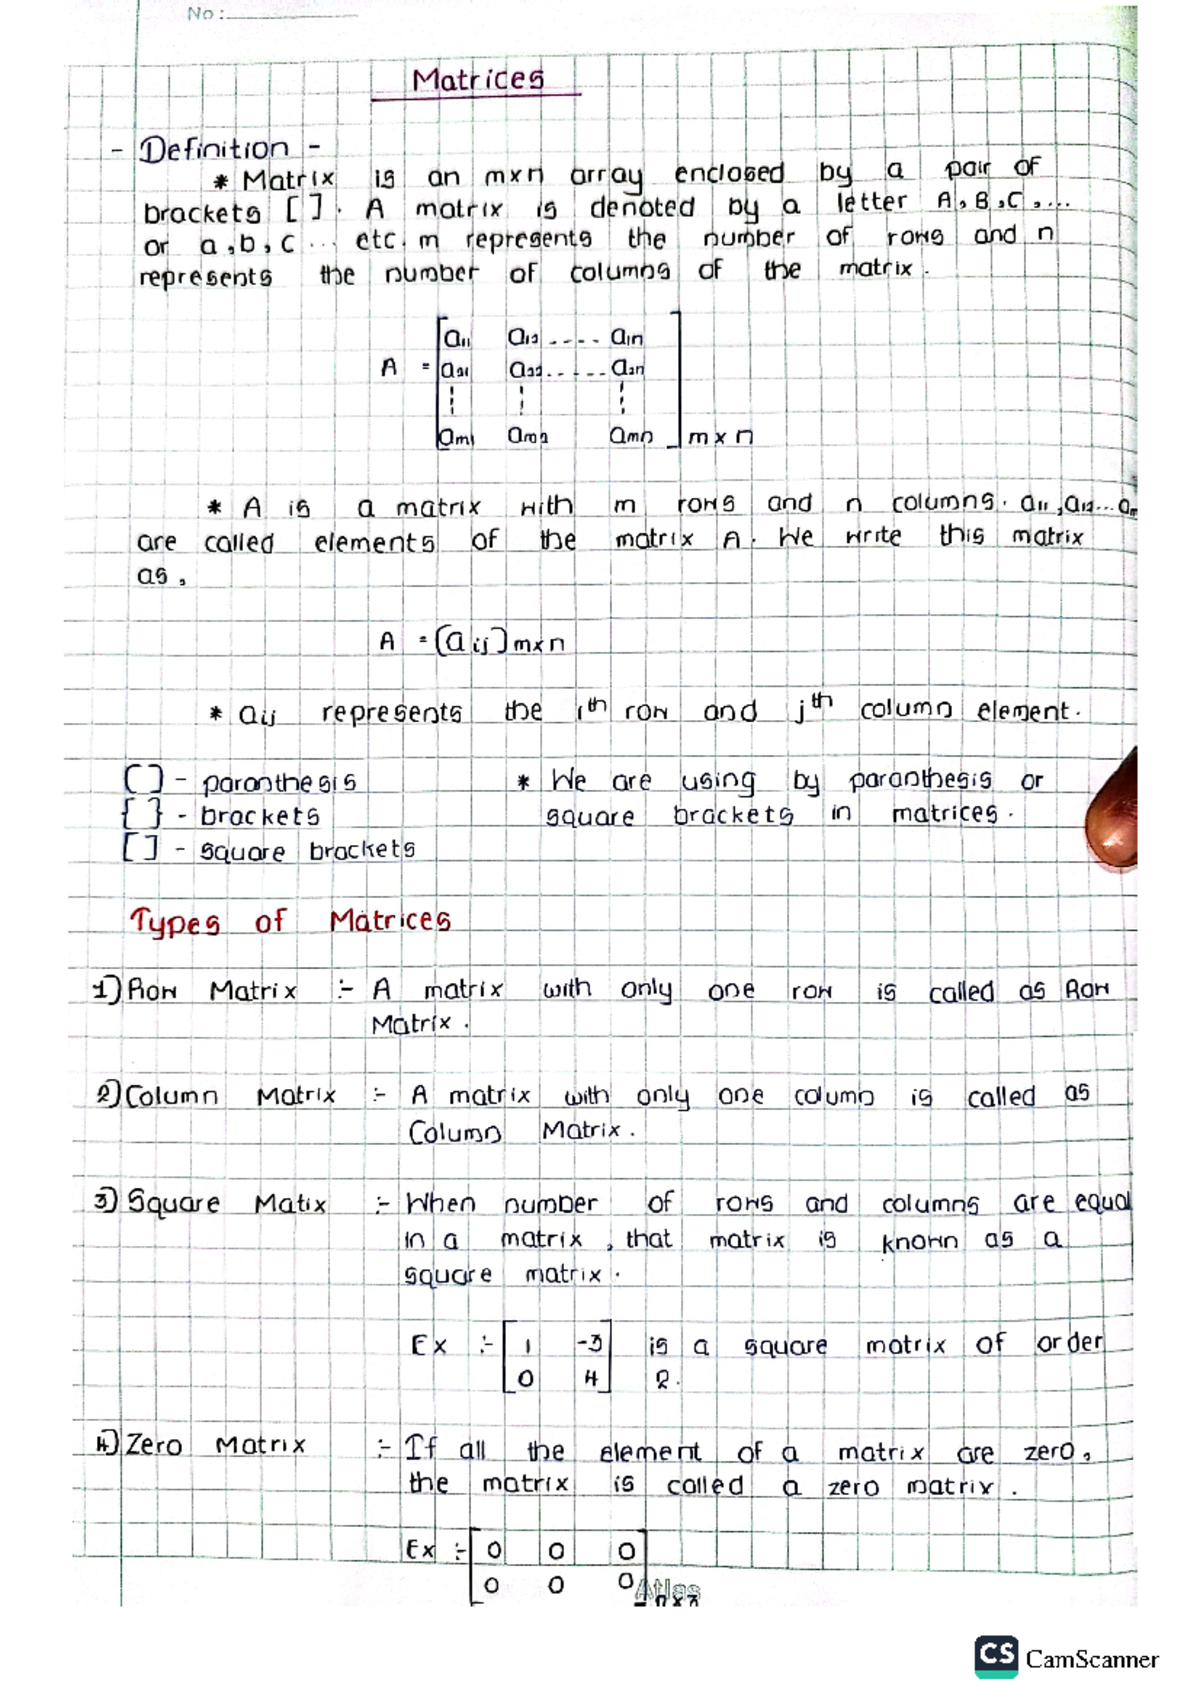 No:
Matrices
- Definition -
* Matrix is an mxn array enclosed by a pair of
brackets []. A matrix is denoted by a letter A,B,C,...
or a,b,c ... etc. m represents the number of rows and n
represents the number of columns of the matrix.
a11 a12 ---- a1n
A = a21 a22 ----- a2n
am1 am2 amn m x n
* A is a matrix with m rows and n columns. a11,a12...a
are called elements of the matrix A. We write this matrix
as,
A = (aij)mxn
* aij represents the ith row and jth column element.
() - paranthesis * We are using by paranthesis or
{ } - brackets square brackets in matrices.
[] - square brackets
Types of Matrices
1) Row Matrix :- A matrix with only one row is called as Row
Matrix.
2) Column Matrix :- A matrix with only one column is called as
Column Matrix.
3) Square Matix :- When number of rows and columns are equal
in a matrix, that matrix is known as a
square matrix.
Ex :- [1 -3] is a square matrix of order
[0 4] 2.
4) Zero Matrix :- If all the element of a matrix are zero,
the matrix is called a zero matrix.
Ex :- [0 0 0]
[0 0 0
Atlas
CS CamScanner